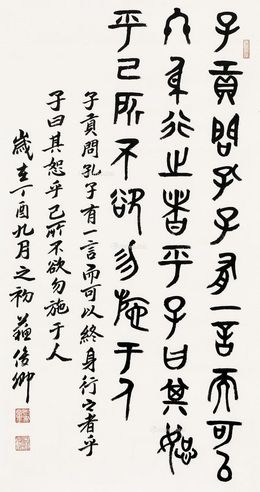 子贡問孔子有一言而可以
終身行之者乎子曰其恕
乎己所不欲勿施于人
子貢問孔子有一言而可以終身行之者乎
子曰其恕乎己所不欲勿施于人
歲在丁酉九月之初 蘇俊卿